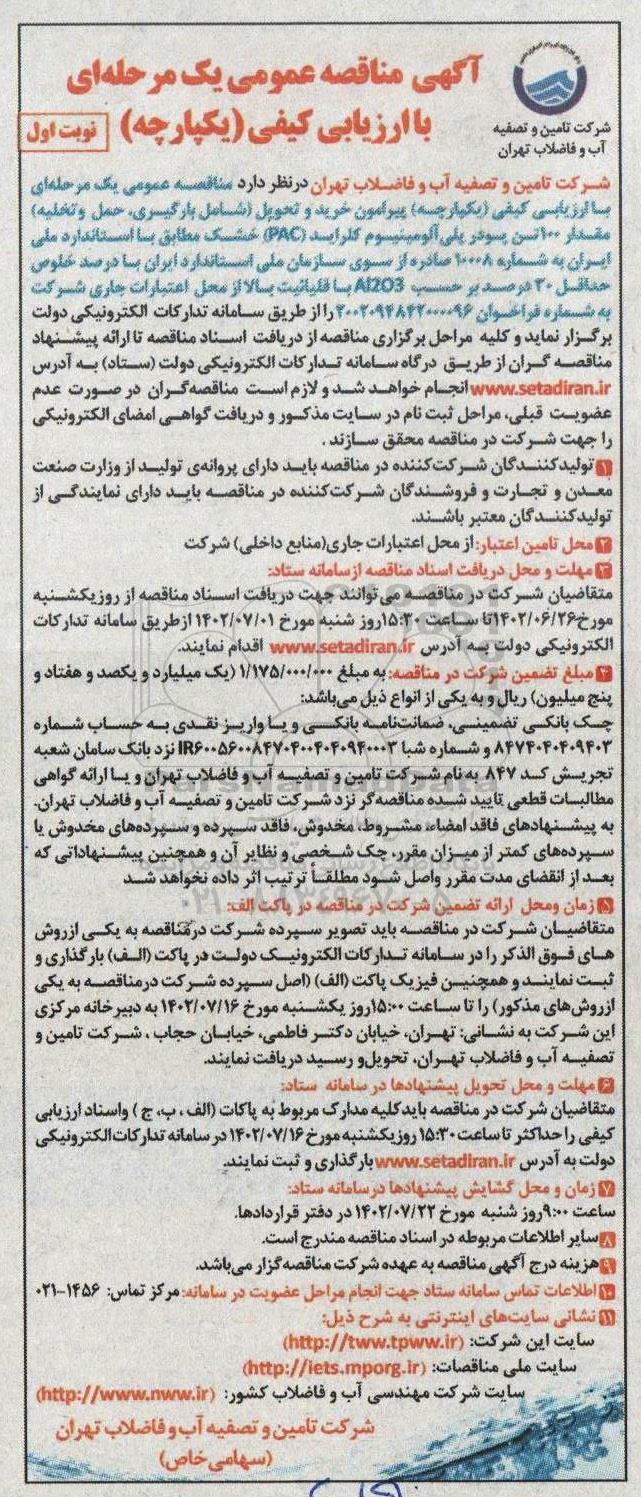 آگهی مناقصه عمومی یک مرحله‌ای
با ارزیابی کیفی (یکپارچه)
نوبت اول
شرکت تامین و تصفیه
آب و فاضلاب تهران
شرکت تامین و تصفیه آب و فاضلاب تهران در نظر دارد مناقصه عمومی یک مرحله‌ای
با ارزیابی کیفی (یکپارچه) پیرامون خرید و تحویل (شامل بارگیری، حمل وتخلیه)
مقدار ۱۰۰تن پودر پلی آلومینیوم کلراید (PAC) خشک مطابق با استاندارد ملی
ایران به شماره ۱۰۰۰۸ صادره از سوی سازمان ملی استاندارد ایران با درصد خلوص
حداقل ۳۰ درصد بر حسب Al2O3 با قلیائیت بالا از محل اعتبارات جاری شرکت
به شماره فراخوان ۲۰۰۲۰۹۴۸۴۲۰۰۰۰۹۶ را از طریق سامانه تدارکات الکترونیکی دولت
برگزار نماید و کلیه مراحل برگزاری مناقصه از دریافت اسناد مناقصه تا ارائه پیشنهاد
مناقصه گران از طریق درگاه سامانه تدارکات الکترونیکی دولت (ستاد) به آدرس
www.setadiran.ir انجام خواهد شد و لازم است مناقصه‌گران در صورت عدم
عضویت قبلی، مراحل ثبت نام در سایت مذکور و دریافت گواهی امضای الکترونیکی
را جهت شرکت در مناقصه محقق سازند .
۱ تولیدکنندگان شرکت‌کننده در مناقصه باید دارای پروانه‌ی تولید از وزارت صنعت
معدن و تجارت و فروشندگان شرکت‌کننده در مناقصه باید دارای نمایندگی از
تولیدکنندگان معتبر باشند.
۲ محل تامین اعتبار: از محل اعتبارات جاری(منابع داخلی) شرکت
۳ مهلت و محل دریافت اسناد مناقصه از سامانه ستاد:
متقاضیان شرکت در مناقصه می‌توانند جهت دریافت اسناد مناقصه از روز یکشنبه
مورخ ۱۴۰۲/۰۶/۲۶ تا ساعت ۱۵:۳۰ روز شنبه مورخ ۱۴۰۲/۰۷/۰۱ از طریق سامانه تدارکات
الکترونیکی دولت به آدرس www.setadiran.ir اقدام نمایند.
۴ مبلغ تضمین شرکت در مناقصه: به مبلغ ۱/۱۷۵/۰۰۰/۰۰۰ (یک میلیارد و یکصد و هفتاد و
پنج میلیون) ریال و به یکی از انواع ذیل می‌باشد:
چک بانکی تضمینی، ضمانت‌نامه بانکی و یا واریز نقدی به حساب شماره
۸۴۷۴۰۴۰۴۰۹۴۰۳ و شماره شبا IR۶۰۰۵۶۰۰۸۴۷۰۴۰۰۴۰۴۰۹۴۰۰۰۳ نزد بانک سامان شعبه
تجریش کد ۸۴۷ به نام شرکت تامین و تصفیه آب و فاضلاب تهران و یا ارائه گواهی
مطالبات قطعی تایید شده مناقصه‌گر نزد شرکت تامین و تصفیه آب و فاضلاب تهران.
به پیشنهادهای فاقد امضاء، مشروط، مخدوش، فاقد سپرده و سپرده‌های مخدوش یا
سپرده‌های کمتر از میزان مقرر، چک شخصی و نظایر آن و همچنین پیشنهاداتی که
بعد از انقضای مدت مقرر واصل شود مطلقاً ترتیب اثر داده نخواهد شد
۵ زمان ومحل ارائه تضمین شرکت در مناقصه در پاکت الف:
متقاضیان شرکت در مناقصه باید تصویر سپرده شرکت درمناقصه به یکی ازروش
های فوق الذکر را در سامانه تدارکات الکترونیک دولت در پاکت (الف) بارگذاری و
ثبت نمایند و همچنین فیزیک پاکت (الف) (اصل سپرده شرکت درمناقصه به یکی
ازروش‌های مذکور) را تا ساعت ۱۵:۰۰ روز یکشنبه مورخ ۱۴۰۲/۰۷/۱۶ به دبیرخانه مرکزی
این شرکت به نشانی: تهران، خیابان دکتر فاطمی، خیابان حجاب ، شرکت تامین و
تصفیه آب و فاضلاب تهران، تحویل‌و رسید دریافت نمایند.
۶ مهلت و محل تحویل پیشنهادها در سامانه ستاد:
متقاضیان شرکت در مناقصه باید کلیه مدارک مربوط به پاکات (الف ، ب، ج ) واسناد ارزیابی
کیفی را حداکثر تا ساعت ۱۵:۳۰ روزیکشنبه مورخ ۱۴۰۲/۰۷/۱۶ در سامانه تدارکات الکترونیکی
دولت به آدرس www.setadiran.ir بارگذاری و ثبت نمایند.
۷ زمان و محل گشایش پیشنهادها درسامانه ستاد:
ساعت ۹:۰۰ روز شنبه مورخ ۱۴۰۲/۰۷/۲۲ در دفتر قراردادها.
۸ سایر اطلاعات مربوطه در اسناد مناقصه مندرج است.
۹ هزینه درج آگهی مناقصه به عهده شرکت مناقصه‌گزار می‌باشد.
۱۰ اطلاعات تماس سامانه ستاد جهت انجام مراحل عضویت در سامانه: مرکز تماس: ۱۴۵۶-۰۲۱
۱۱ نشانی سایت‌های اینترنتی به شرح ذیل:
سایت این شرکت: (http://tww.tpww.ir)
سایت ملی مناقصات: (http://iets.mporg.ir)
سایت شرکت مهندسی آب و فاضلاب کشور: (http://www.nww.ir)
شرکت تامین و تصفیه آب و فاضلاب تهران
(سهامی خاص)